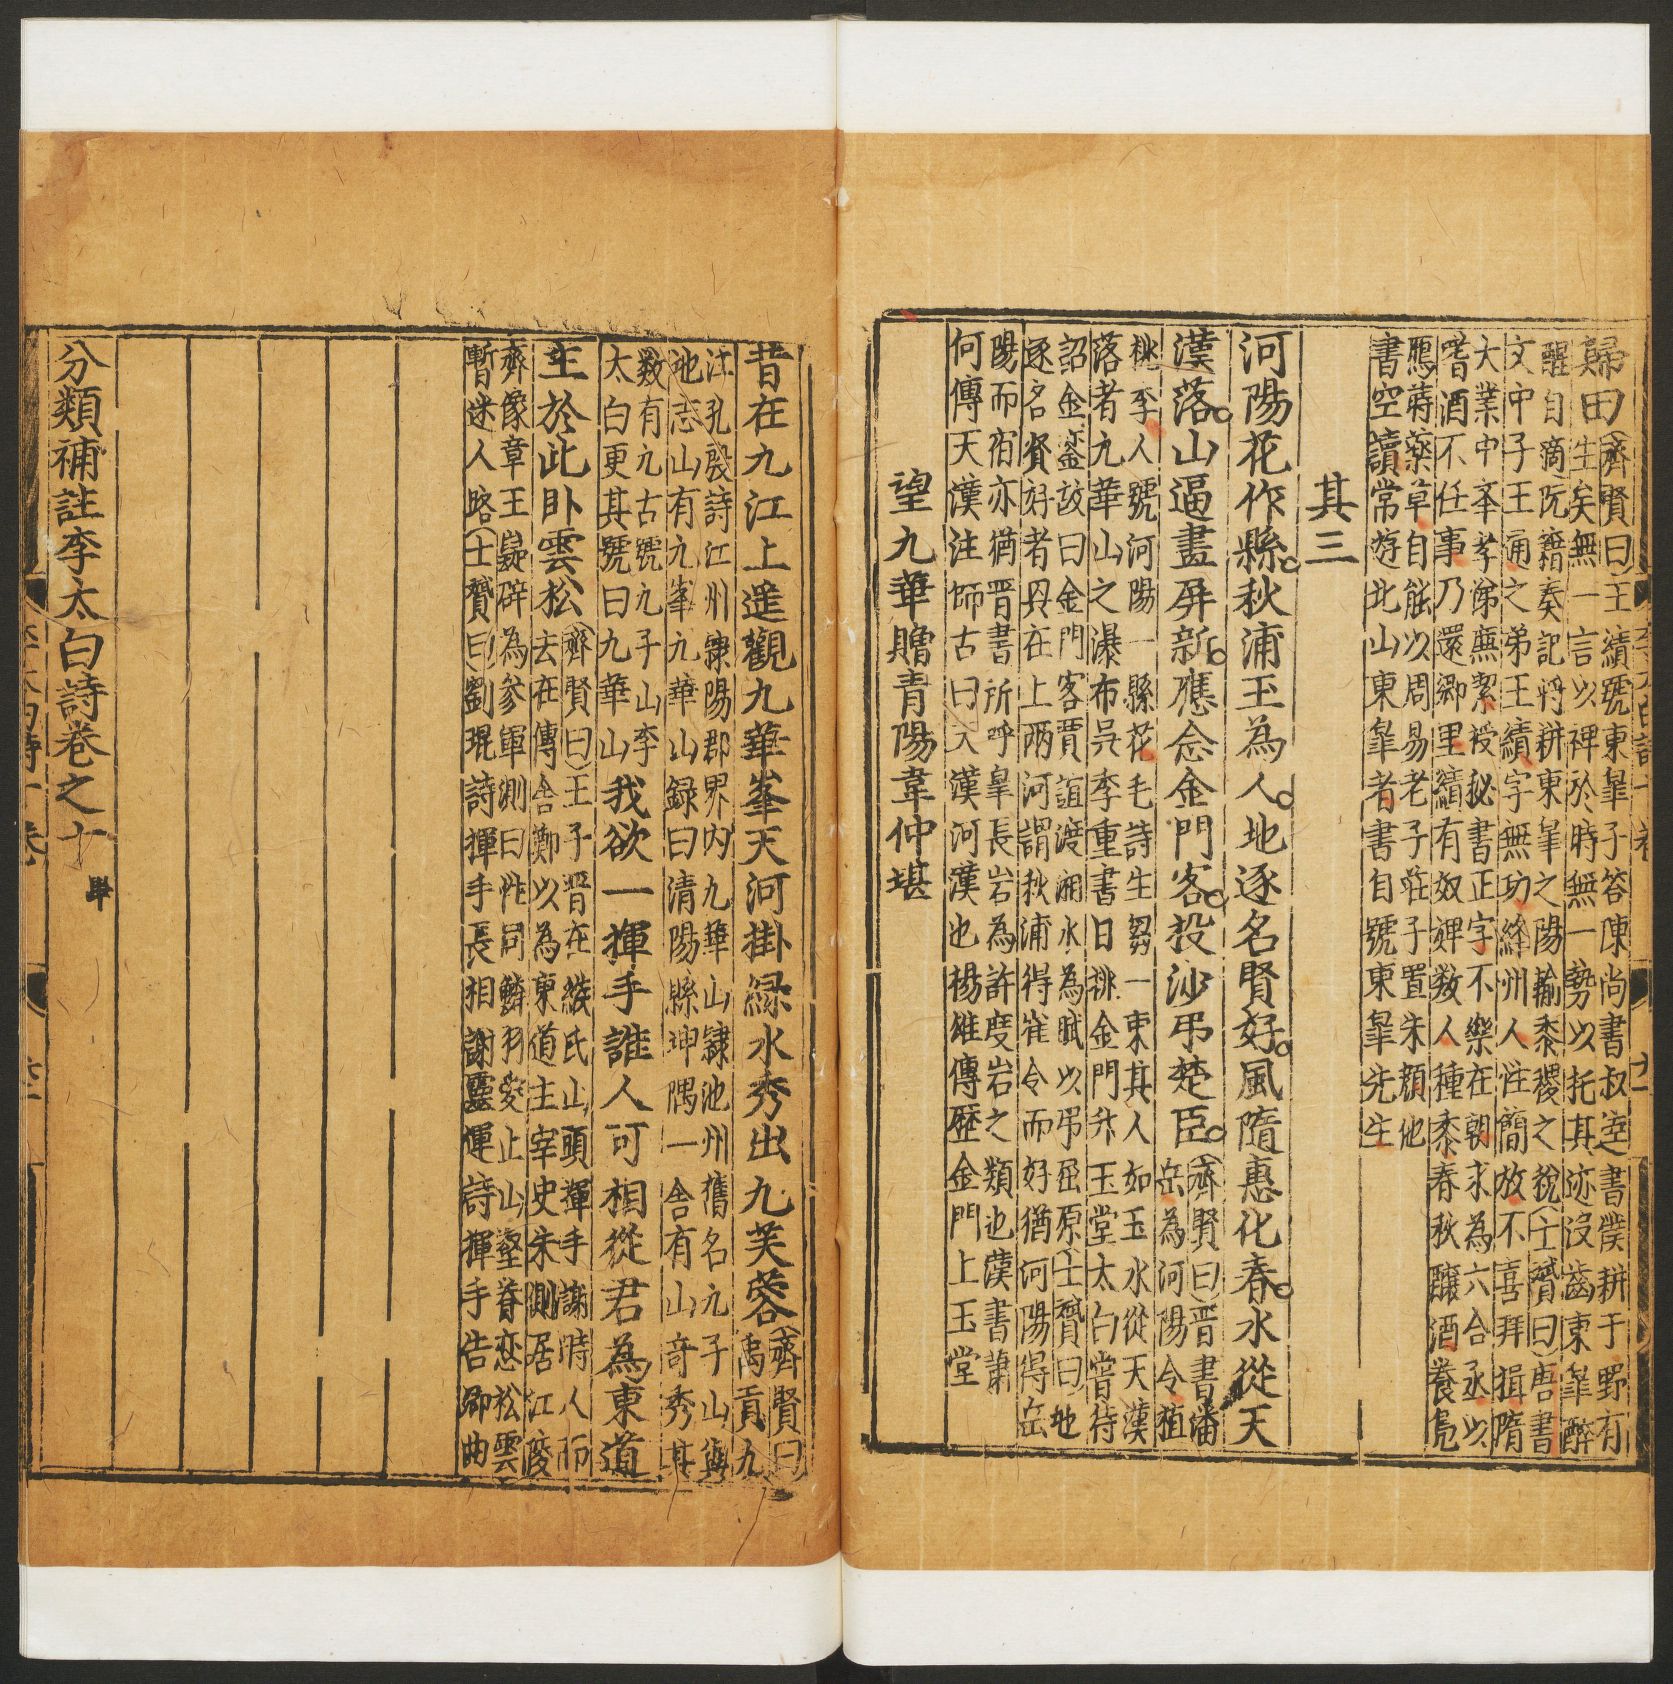 歸田(齊賢曰)王績號東臯子答陳尚書叔達書僕耕于野有
生矣無一言以裨於時無一勢以托其迹沒齒東臯醉
醒自適(阮籍奏記將耕東臯之陽輸黍稷之稅(士贇曰)唐書
文中子王通之弟王績字無功絳州人性簡放不喜拜揖隋
大業中孝悌廉潔授秘書正字不樂在朝求為六合丞以
嗜酒不任事乃還鄉里績有奴婢數人種黍春秋釀酒養鳧
鴈蒔藥草自能以周易老子莊子置朱顏他
書空讀常遊北山東臯者書自號東臯先生
其三
河陽花作縣秋浦玉為人地逐名賢好風隨惠化春水從天
漢落山逼畫屏新應念金門客投沙弔楚臣(齊賢曰)晉書潘
岳為河陽令植
桃李人號河陽一縣花毛詩生芻一束其人如玉水從天漢
落者九華山之瀑布吳李重書日排金門升玉堂太白嘗待
詔金鑾故曰金門客賈誼渡湘水為賦以弔屈原(士贇曰)地
逐名賢好者異在上兩河謂秋浦得崔令而好猶河陽得岳
陽而宿亦猶晉書所呼臯長岩為許度岩之類也漢書蕭
何傳天漢注師古曰天漢河漢也楊雄傳歷金門上玉堂
望九華贈青陽韋仲堪
昔在九江上遥觀九華峯天河掛緑水秀出九芙蓉(齊賢曰)
禹貢九
江孔殷詩江州隸陽郡界内九華山隸池州舊名九子山與
池志山有九峯九華山録曰清陽縣坤隅一舍有山奇秀其
数有九古號九子山李
太白更其號曰九華山我欲一揮手誰人可相從君為東道
主於此卧雲松(齊賢曰)王子晋在緱氏山頭揮手謝時人而
去在傳舍鄭以為東道主宰史朱測居江陵
齊像章王嶷辟為參軍測曰性同鱗羽愛止山壑眷恋松雲
暫迷人路(士贇曰)劉琨詩揮手長相謝靈運詩揮手告鄉曲
分類補註李太白詩卷之十